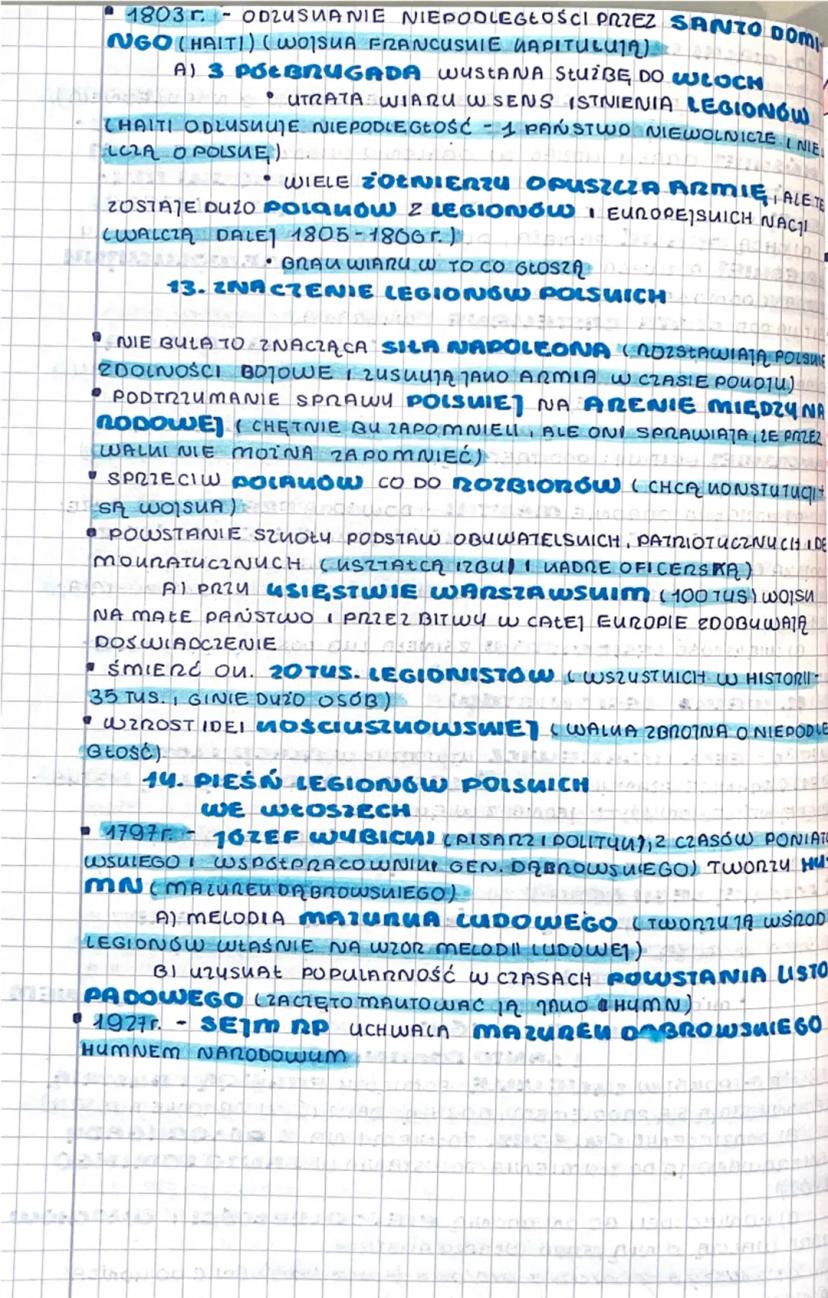 • 1803 r. - ODZYSKANIE NIEPODLEGŁOŚCI PRZEZ SANTO DOMI-
NGO (HAITI) (WOJSKA FRANCUSKIE KAPITULUJĄ)
A) 3 PÓŁBRYGADA WYSŁANA SŁUŻBĘ DO WŁOCH
• UTRATA WIARY W SENS ISTNIENIA LEGIONÓW
(HAITI ODZYSKUJE NIEPODLEGŁOŚĆ - 1 PAŃSTWO NIEWOLNICZE I NIE
LCZĄ O POLSKĘ)
• WIELE ŻOŁNIERZY OPUSZCZA ARMIĘ, ALE TE
ZOSTAJE DUŻO POLAKÓW Z LEGIONÓW I EUROPEJSKICH NACJI
(WALCZĄ DALEJ 1805-1806r.)
• BRAK WIARY W TO CO GŁOSZĄ
13. ZNACZENIE LEGIONÓW POLSKICH
• NIE BYŁA TO ZNACZĄCA SIŁA NAPOLEONA (ROZSŁAWIAJĄ POLSKIE
ZDOLNOŚCI BOJOWE I ZYSKUJĄ JAKO ARMIA W CZASIE POKOJU)
• PODTRZYMANIE SPRAWY POLSKIEJ NA ARENIE MIĘDZYNA
RODOWEJ (CHĘTNIE BY ZAPOMNIELI, ALE ONI SPRAWIAJĄ, ŻE PRZEZ
WALKI NIE MOŻNA ZAPOMNIEĆ)
• SPRZECIW POLAKÓW CO DO ROZBIORÓW (CHCĄ KONSTYTUCJI +
SĄ WOJSKA)
• POWSTANIE SZKOŁY PODSTAW OBYWATELSKICH, PATRIOTYCZNYCH I DE
MOKRATYCZNYCH (KSZTAŁCĄ IZBY I KADRĘ OFICERSKĄ)
A) PRZY KSIĘSTWIE WARSZAWSKIM (100 TYS) WOJSK
NA MAŁE PAŃSTWO I PRZEZ BITWY W CAŁEJ EUROPIE ZDOBYWAJĄ
DOŚWIADCZENIE
• ŚMIERĆ OK. 20 TYS. LEGIONISTÓW (WSZYSTKICH W HISTORII -
35 TYS. I GINIE DUŻO OSÓB)
• WZROST IDEI KOŚCIUSZKOWSKIEJ (WALKA ZBROJNA O NIEPODLE
GŁOŚĆ)
14. PIEŚŃ LEGIONÓW POLSKICH
WE WŁOSZECH
• 1797r. - JÓZEF WYBICKI (PISARZ I POLITYK), Z CZASÓW PONIATO
WSKIEGO I WSPÓŁPRACOWNIK GEN. DĄBROWSKIEGO) TWORZY HY-
MN (MAZUREK DĄBROWSKIEGO)
A) MELODIA MAZURKA LUDOWEGO (TWORZY JĄ WŚRÓD
LEGIONÓW WŁAŚNIE NA WZÓR MELODII LUDOWEJ)
B) UZYSKAŁ POPULARNOŚĆ W CZASACH POWSTANIA LISTO
PADOWEGO (ZACZĘTO TRAKTOWAĆ JĄ JAKO HYMN)
• 1927r. - SEJM RP UCHWALA MAZUREK DĄBROWSKIEGO
HYMNEM NARODOWYM